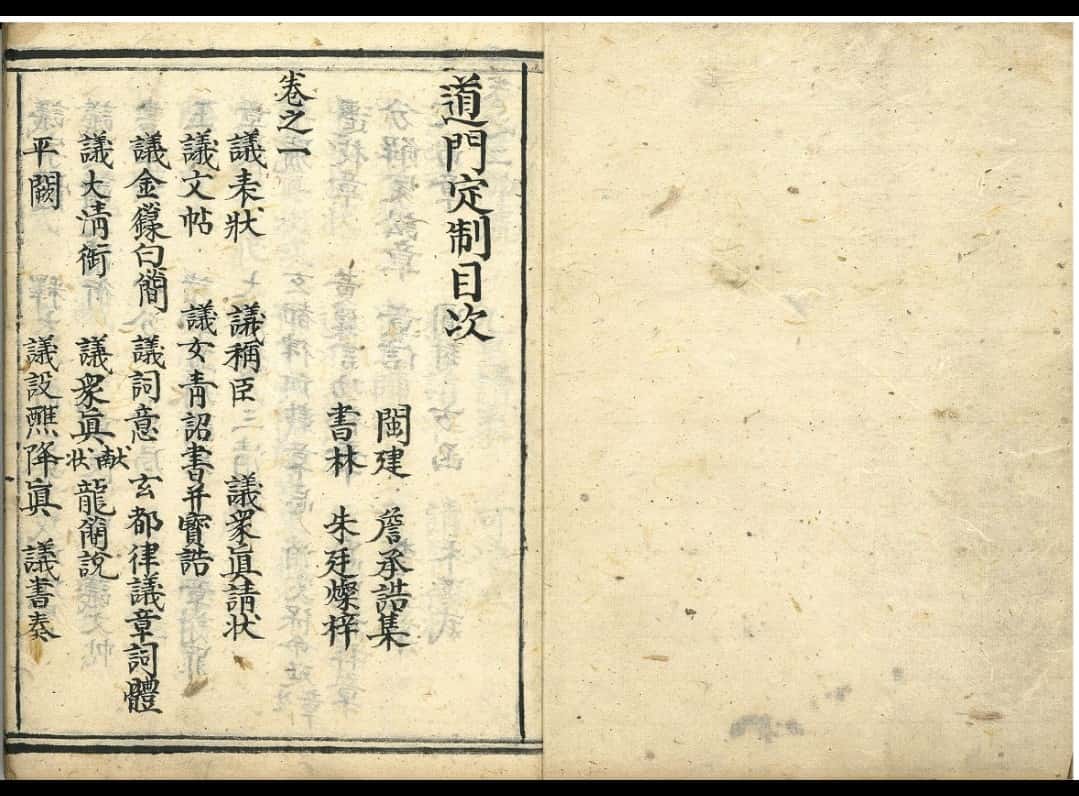 道門定制目次
閩建 詹承誥集
書林 朱廷燦梓
卷之一
議表狀 議稱臣 議衆眞請狀
議文帖 議女青詔書并寶誥
議金籙白簡 議詞意 玄都律議章詞體
議大清銜 議衆眞献狀 龍簡說
平闕 議設醮降眞 議書奏